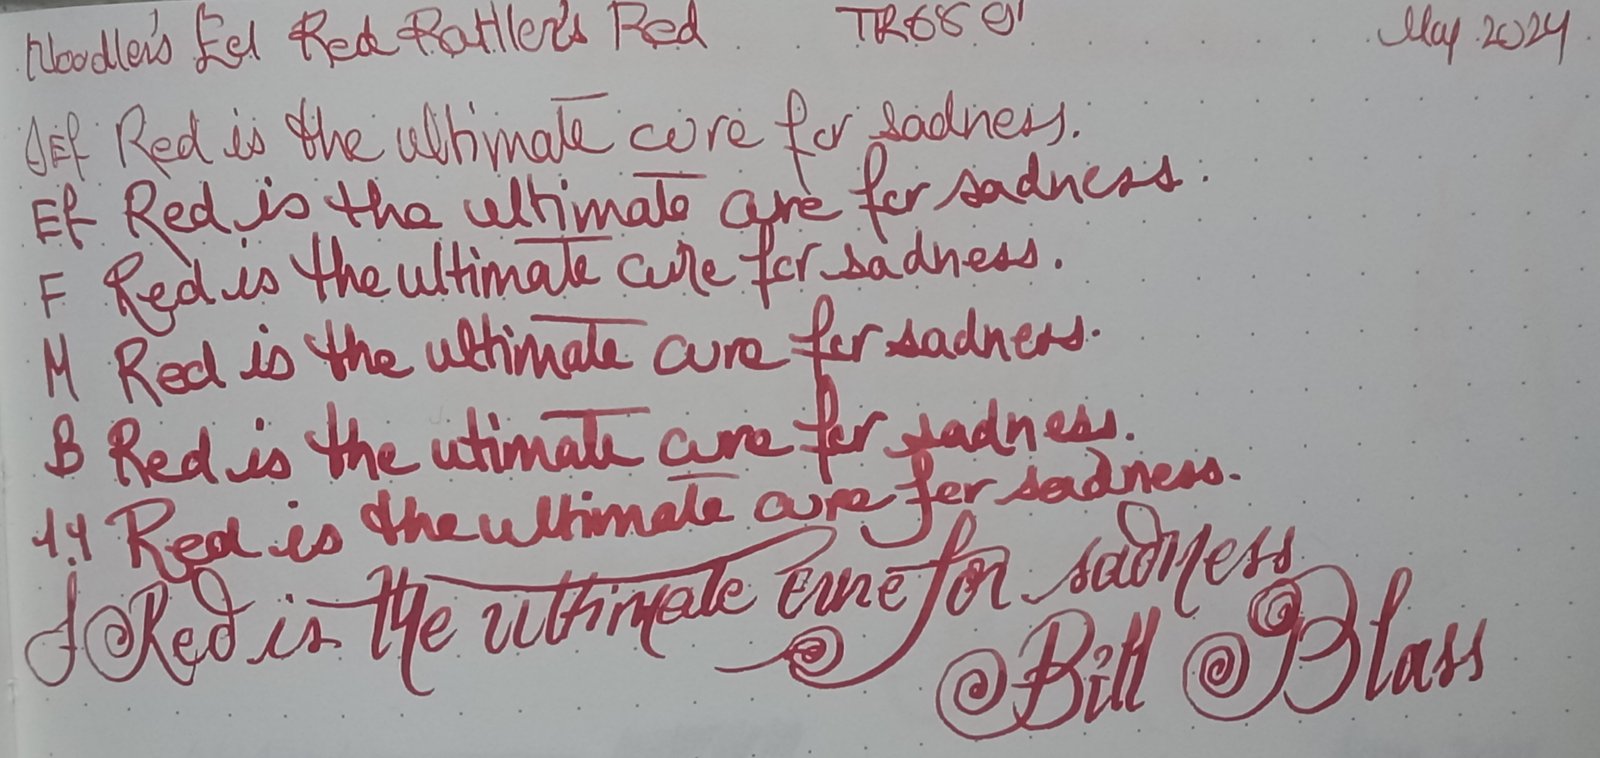 Noodler's Eel Red Rattler's Red TR68 gr May 2024
JEF Red is the ultimate cure for sadness.
EF Red is the ultimate cure for sadness.
F Red is the ultimate cure for sadness.
M Red is the ultimate cure for sadness.
B Red is the utimate cure for sadness.
1.4 Red is the ultimate cure for sadness.
J Red is the ultimate cure for sadness
Bill Blass